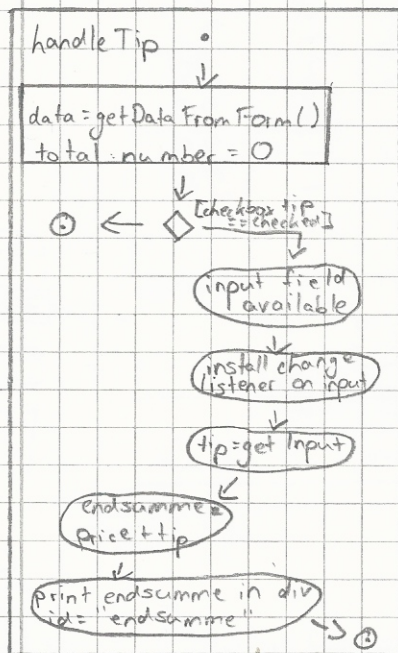 handle Tip
data = getDataFromForm()
total: number = 0
[checkbox tip
== checked]
input field
available
install change
listener on input
tip = get Input
endsumme =
price + tip
print endsumme in div
id = "endsumme"